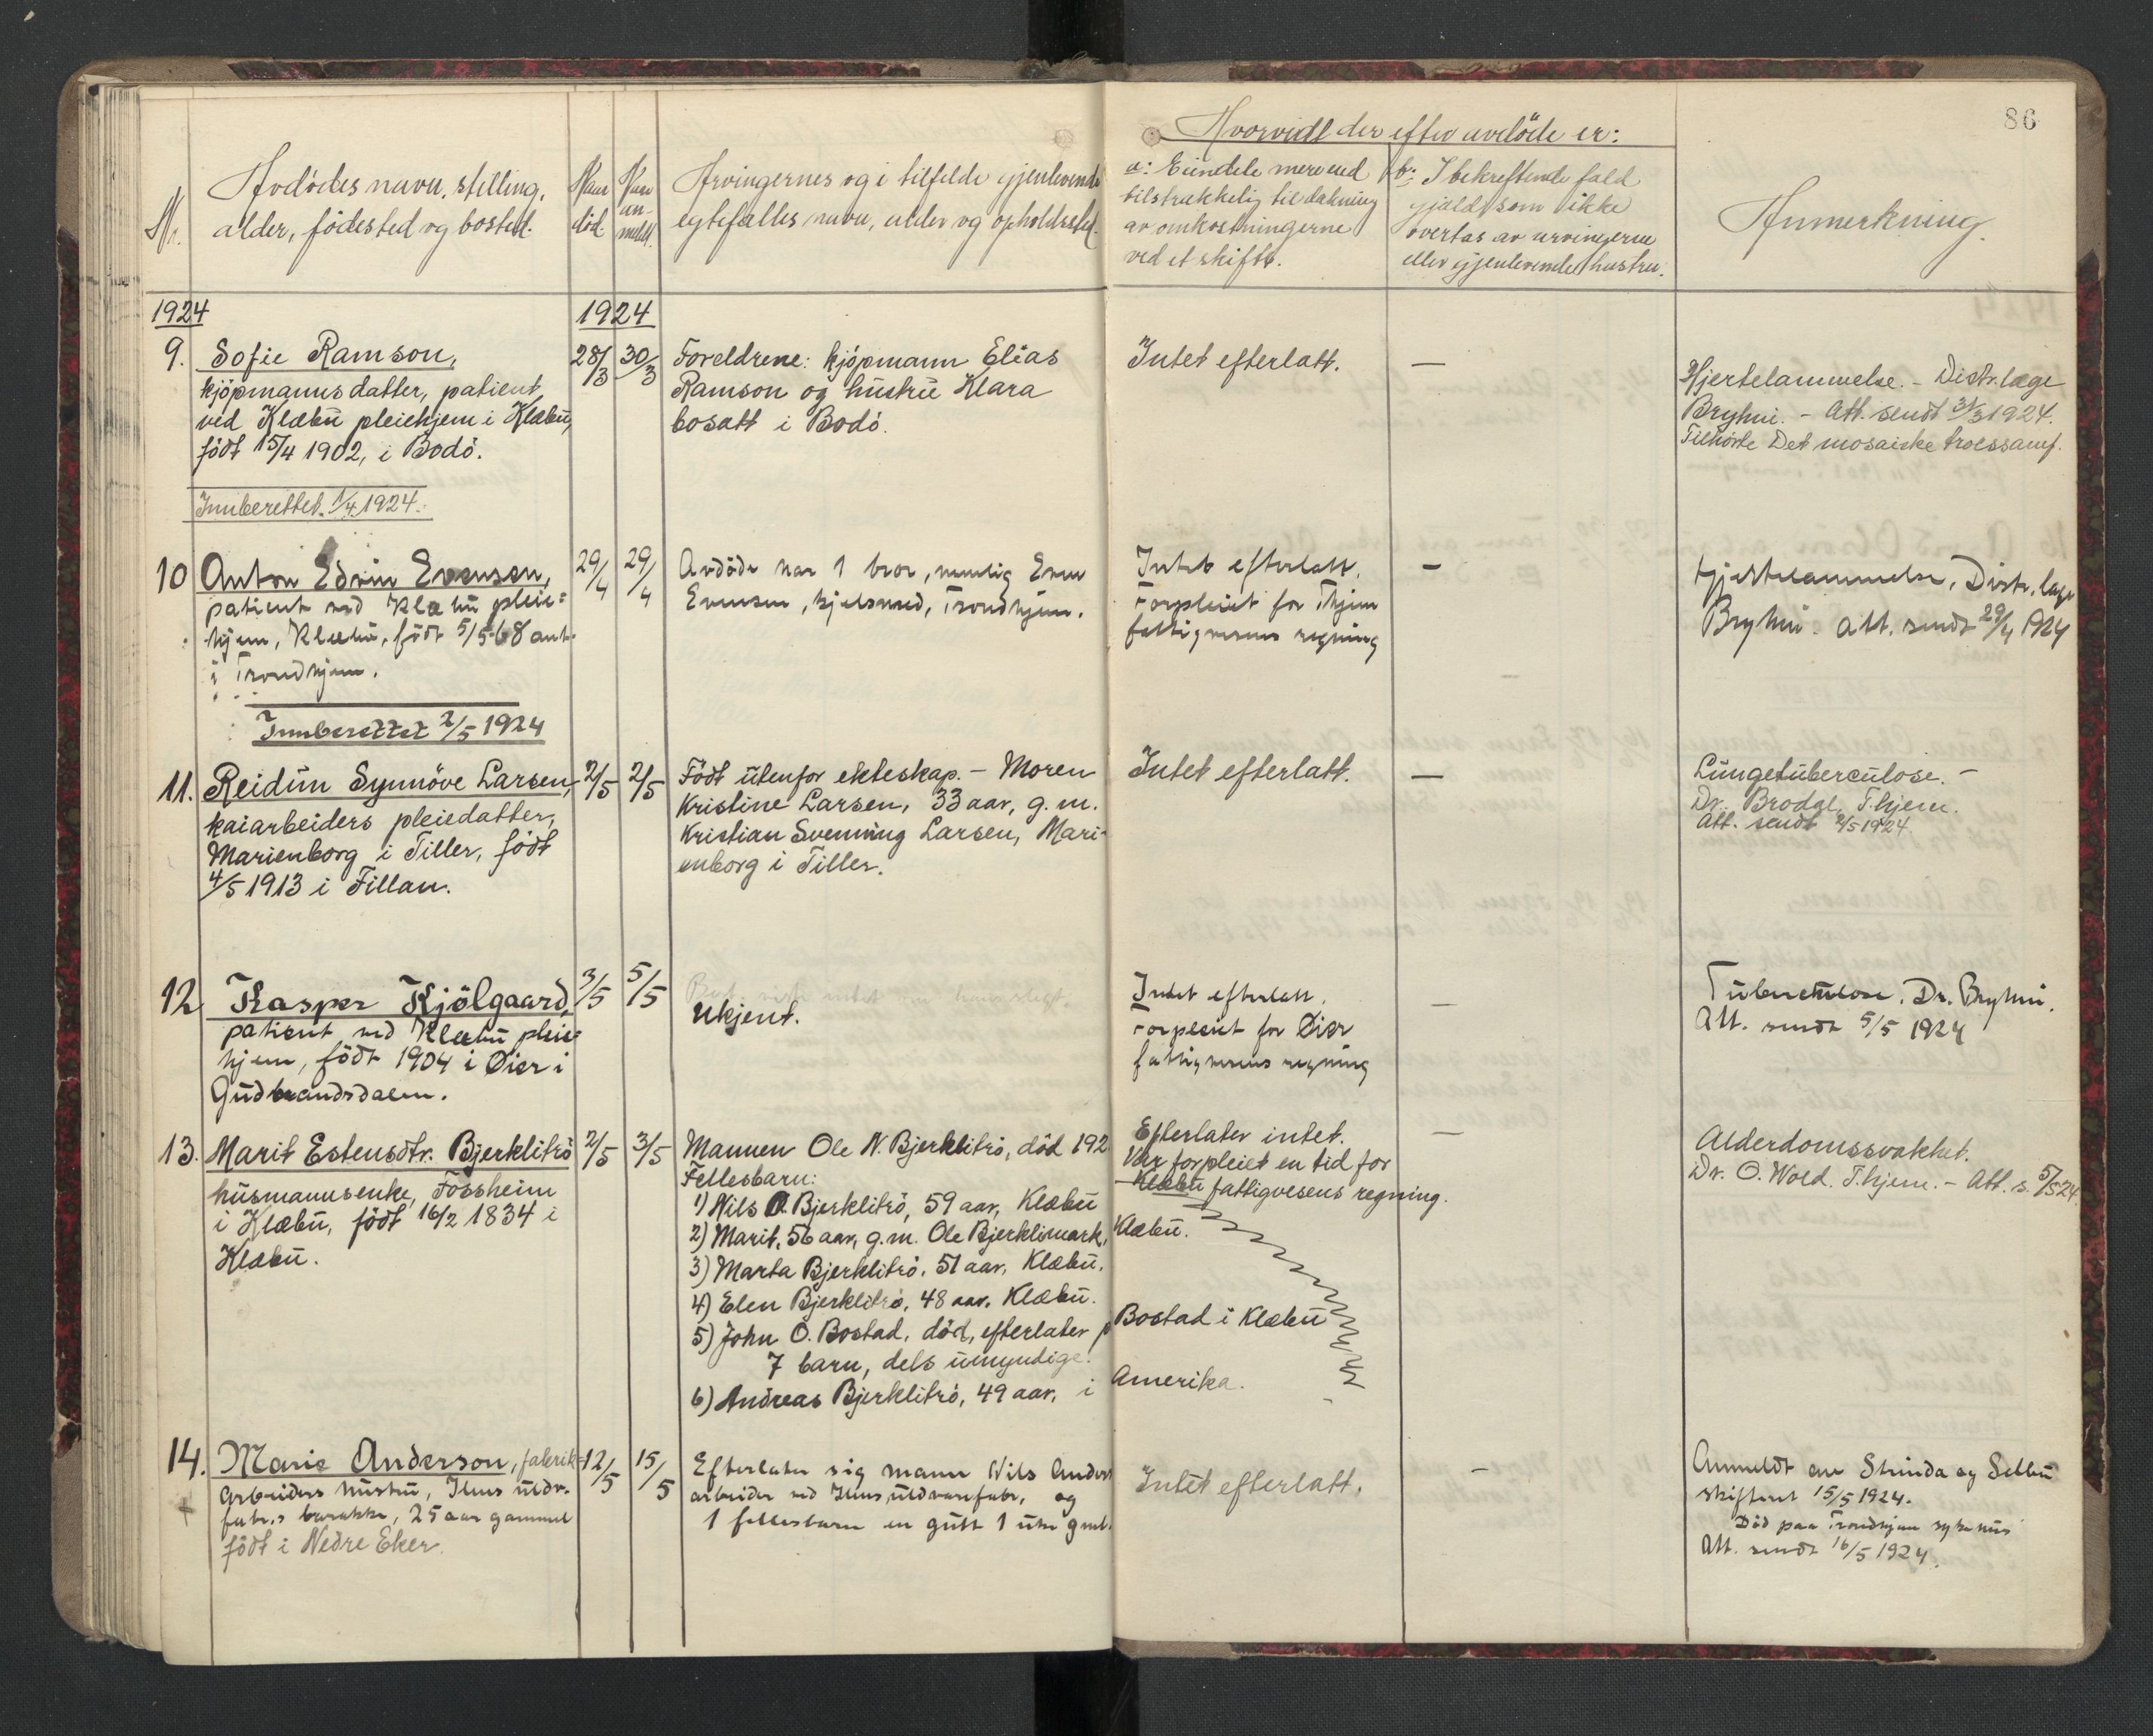 86
Nr.
Avdödes navn, stilling,
alder, födested og bosted.
Naar
död.
Naar
an-
meldt.
Arvingernes og i tilfelde gjenlevende
egtefælles navn, alder og opholdssted.
Hvorvidt der efter avdöde er:
a: Eiendele mere end
tilstrækkelig til dækning
av omkostningerne
ved et skifte.
b: I bekreftende fald
gjæld som ikke
overtas av arvingerne
eller gjenlevende hustru.
Anmerkning.
1924
1924
9. Sofie Ramson,
kjöpmannsdatter, patient
ved Klæbu pleiehjem i Klæbu,
födt 15/4 1902, i Bodö.
Innberettet 1/4 1924.
28/3
30/3
Foreldrene: kjöpmann Elias
Ramson og hustru Klara
bosatt i Bodö.
Intet efterlatt.
—
Hjertelammelse. - Distr.læge
Bryhni. - Att. sendt 31/3 1924.
Tilhörte Det mosaiske troessamf.
10 Anton Edvin Evensen,
patient ved Klæbu pleie=
hjem, Klæbu, födt 5/5-68 ant.
i Trondhjem.
Innberettet 2/5 1924
29/4
29/4
Avdöde har 1 bror, nemlig Even
Evensen, hjelsmed, Trondhjem.
Intet efterlatt.
Forpleiet for Thjem
fattigvesens regning
—
Hjertelammelse, Distr.læge
Bryhni. Att. sendt 29/4 1924
11. Reidun Synnöve Larsen,
kaiarbeiders pleiedatter,
Marienborg i Tiller, födt
4/5 1913 i Fillan.
2/5
2/5
Födt utenfor ekteskap. - Moren
Kristine Larsen, 33 aar, g.m.
Kristian Svenning Larsen, Mari-
enborg i Tiller.
Intet efterlatt.
—
Lungetuberculose. -
Dr. Brodal, T.hjem.
Att. sendt 2/5 1924.
12 Kasper Kjölgaard,
patient ved Klæbu pleie=
hjem, födt 1904 i Öier i
Gudbrandsdalen.
3/5
5/5
Ukjent.
Intet efterlatt.
Forpleiet for Öier
fattigvesens regning
—
Tuberculose. Dr. Bryhni.
Att. sendt 5/5 1924
13. Marit Estensdtr. Bjerklitrö
husmannsenke, Fossheim
i Klæbu, födt 16/2 1834 i
Klæbu.
2/5
3/5
Mannen Ole N. Bjerklitrö, död 192
Fellesbarn:
1) Nils O. Bjerklitrö, 59 aar, Klæbu
2) Marit, 56 aar, g.m. Ole Bjerklimark, Klæbu.
3) Marta Bjerklitrö, 51 aar, Klæbu.
4) Elen Bjerklitrö, 48 aar, Klæbu.
5) John O. Bostad, död, efterlater p Bostad i Klæbu
7 barn, dels umyndige.
6) Andreas Bjerklitrö, 49 aar, i Amerika.
Efterlater intet.
Var forpleiet en tid for
Klæbu fattigvesens regning.
—
Alderdomssvakhet.
Dr. O. Wold. T.hjem. - Att. s. 5/5 24.
14. Marie Anderson, fabrik=
arbeiders hustru, Ilens uldv.
fabr.s barakke, 25 aar gammel
födt i Nedre Eker.
12/5
15/5
Efterlater sig mann Nils Anders
arbeider ved Ilens uldvarefabr, og
1 fellesbarn en gutt 1 uke gml.
Intet efterlatt.
—
Anmeldt av Strinda og Selbu
skifterett 15/5 1924.
Död paa Trondhjem sykehus
Att. sendt 16/5 1924.